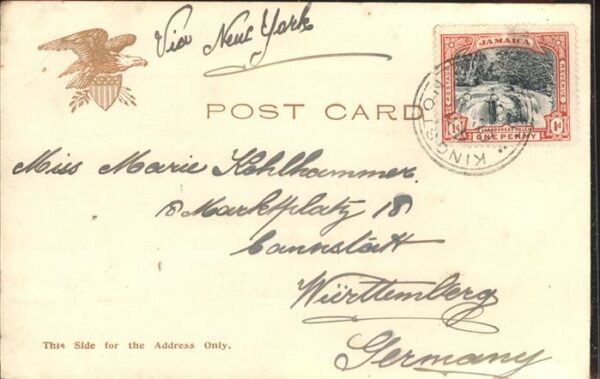 Via New York
JAMAICA
POST CARD
ONE PENNY
1d 1d
KINGSTON
Miss Marie Kohlhammer.
Marktplatz 18
Cannstatt
Württemberg
Germany
This Side for the Address Only.